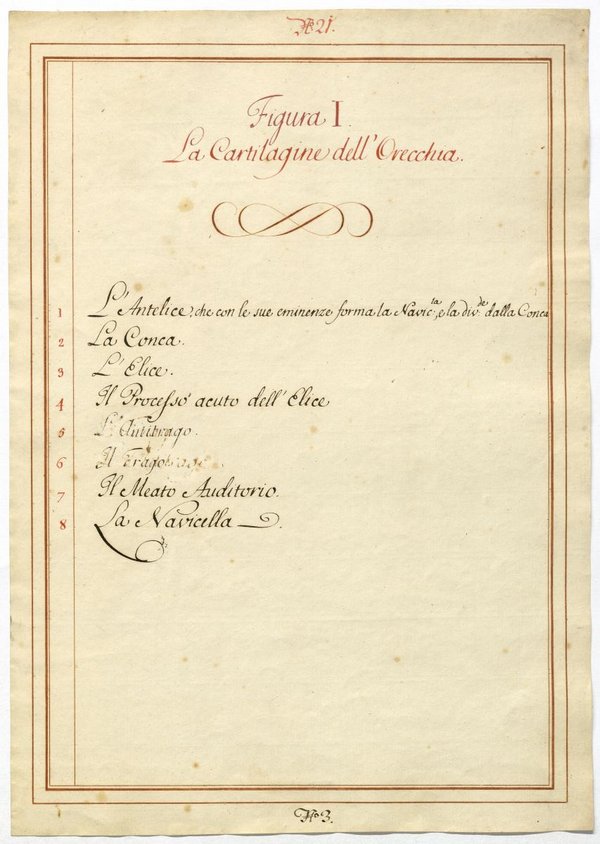 No 21.
Figura I.
La Cartilagine dell' Orecchia.
1 L'Antelice, che con le sue eminenze forma la Navic.la, e la div.de dalla Conca
2 La Conca.
3 L'Elice.
4 Il Processo acuto dell'Elice
5 L'Antitrago.
6 Il Trago
7 Il Meato Auditorio.
8 La Navicella.
No 3.